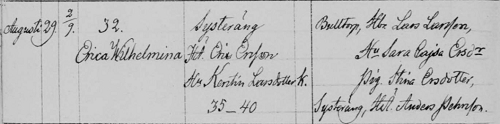 Augusti 29 2/9. 32. Systeräng Bulltorp, Hr. Lars Larsson,
Erica Wilhelmina Hr. Eric Ersson Hu Sara Cajsa Ersdr
Hu Kerstin Larsdotter k. Pig. Stina Ersdotter,
35–40 Systeräng, Anders Pehrson.